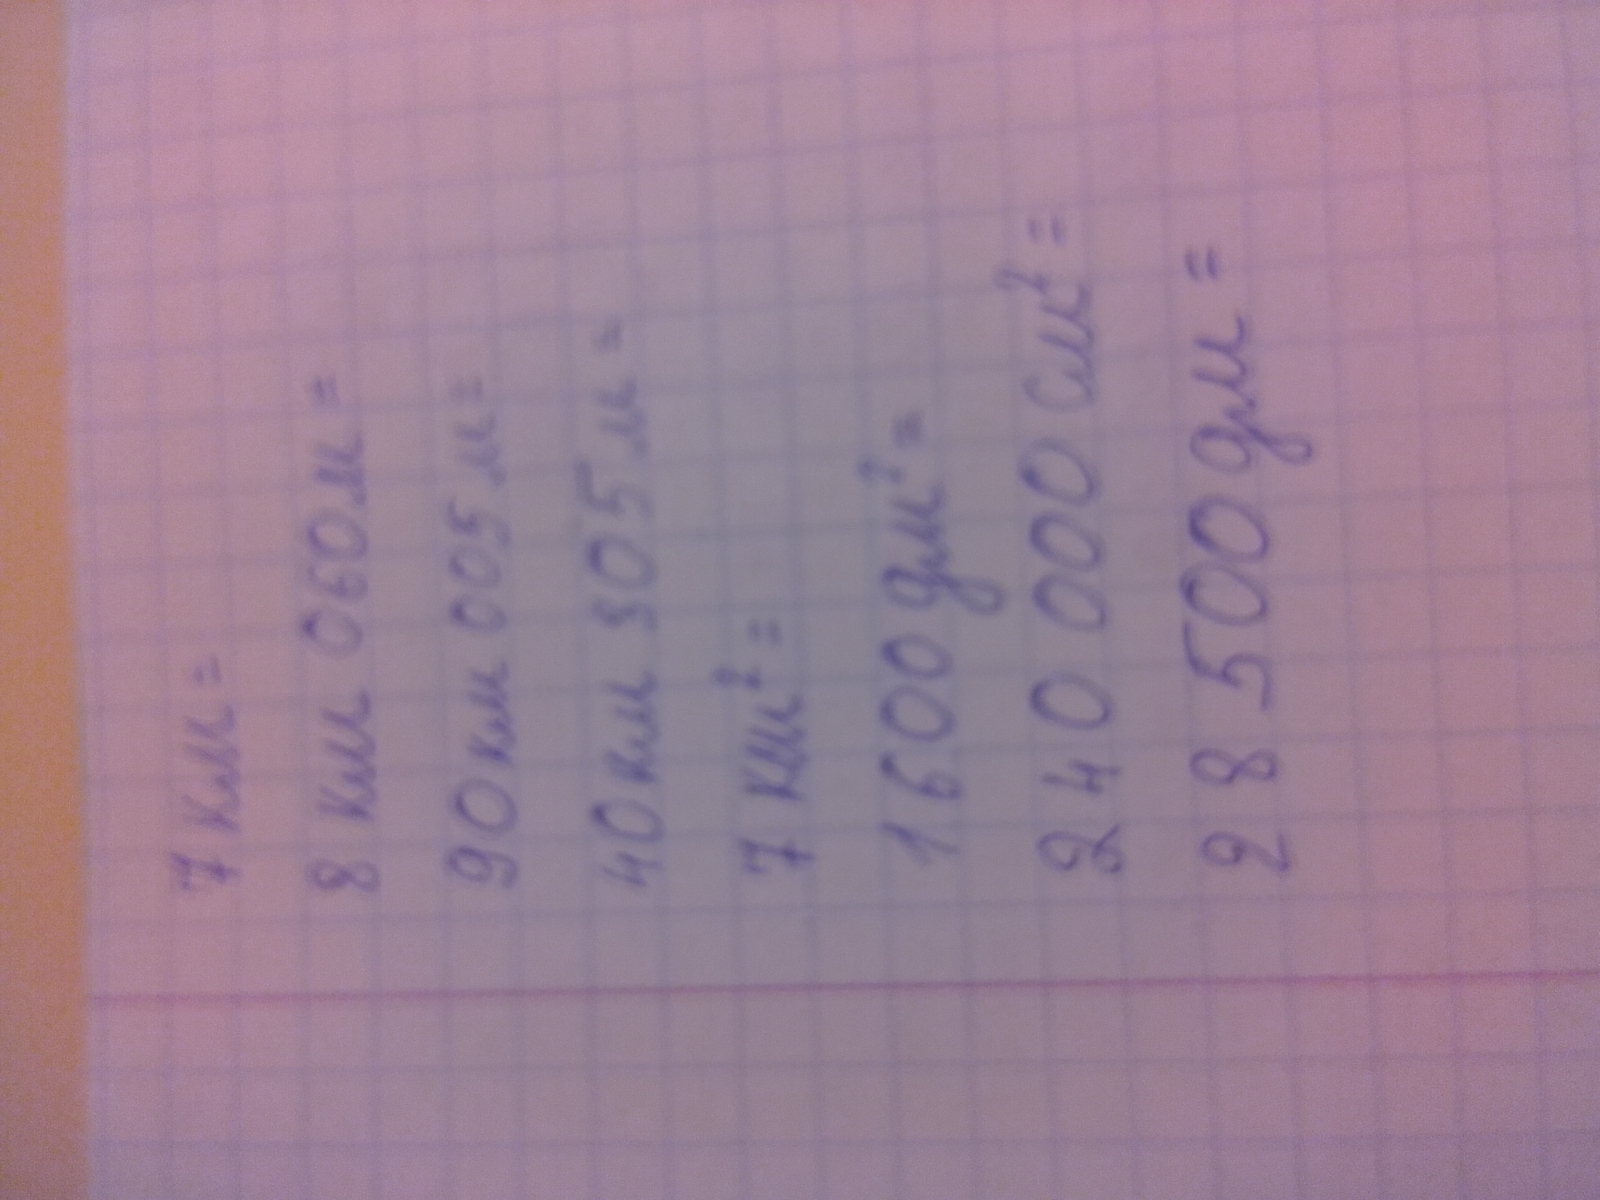 7 км =
8 км 060 м =
90 км 005 м =
40 км 805 м =
7 км² =
1600 дм² =
240 000 см² =
28 500 дм =